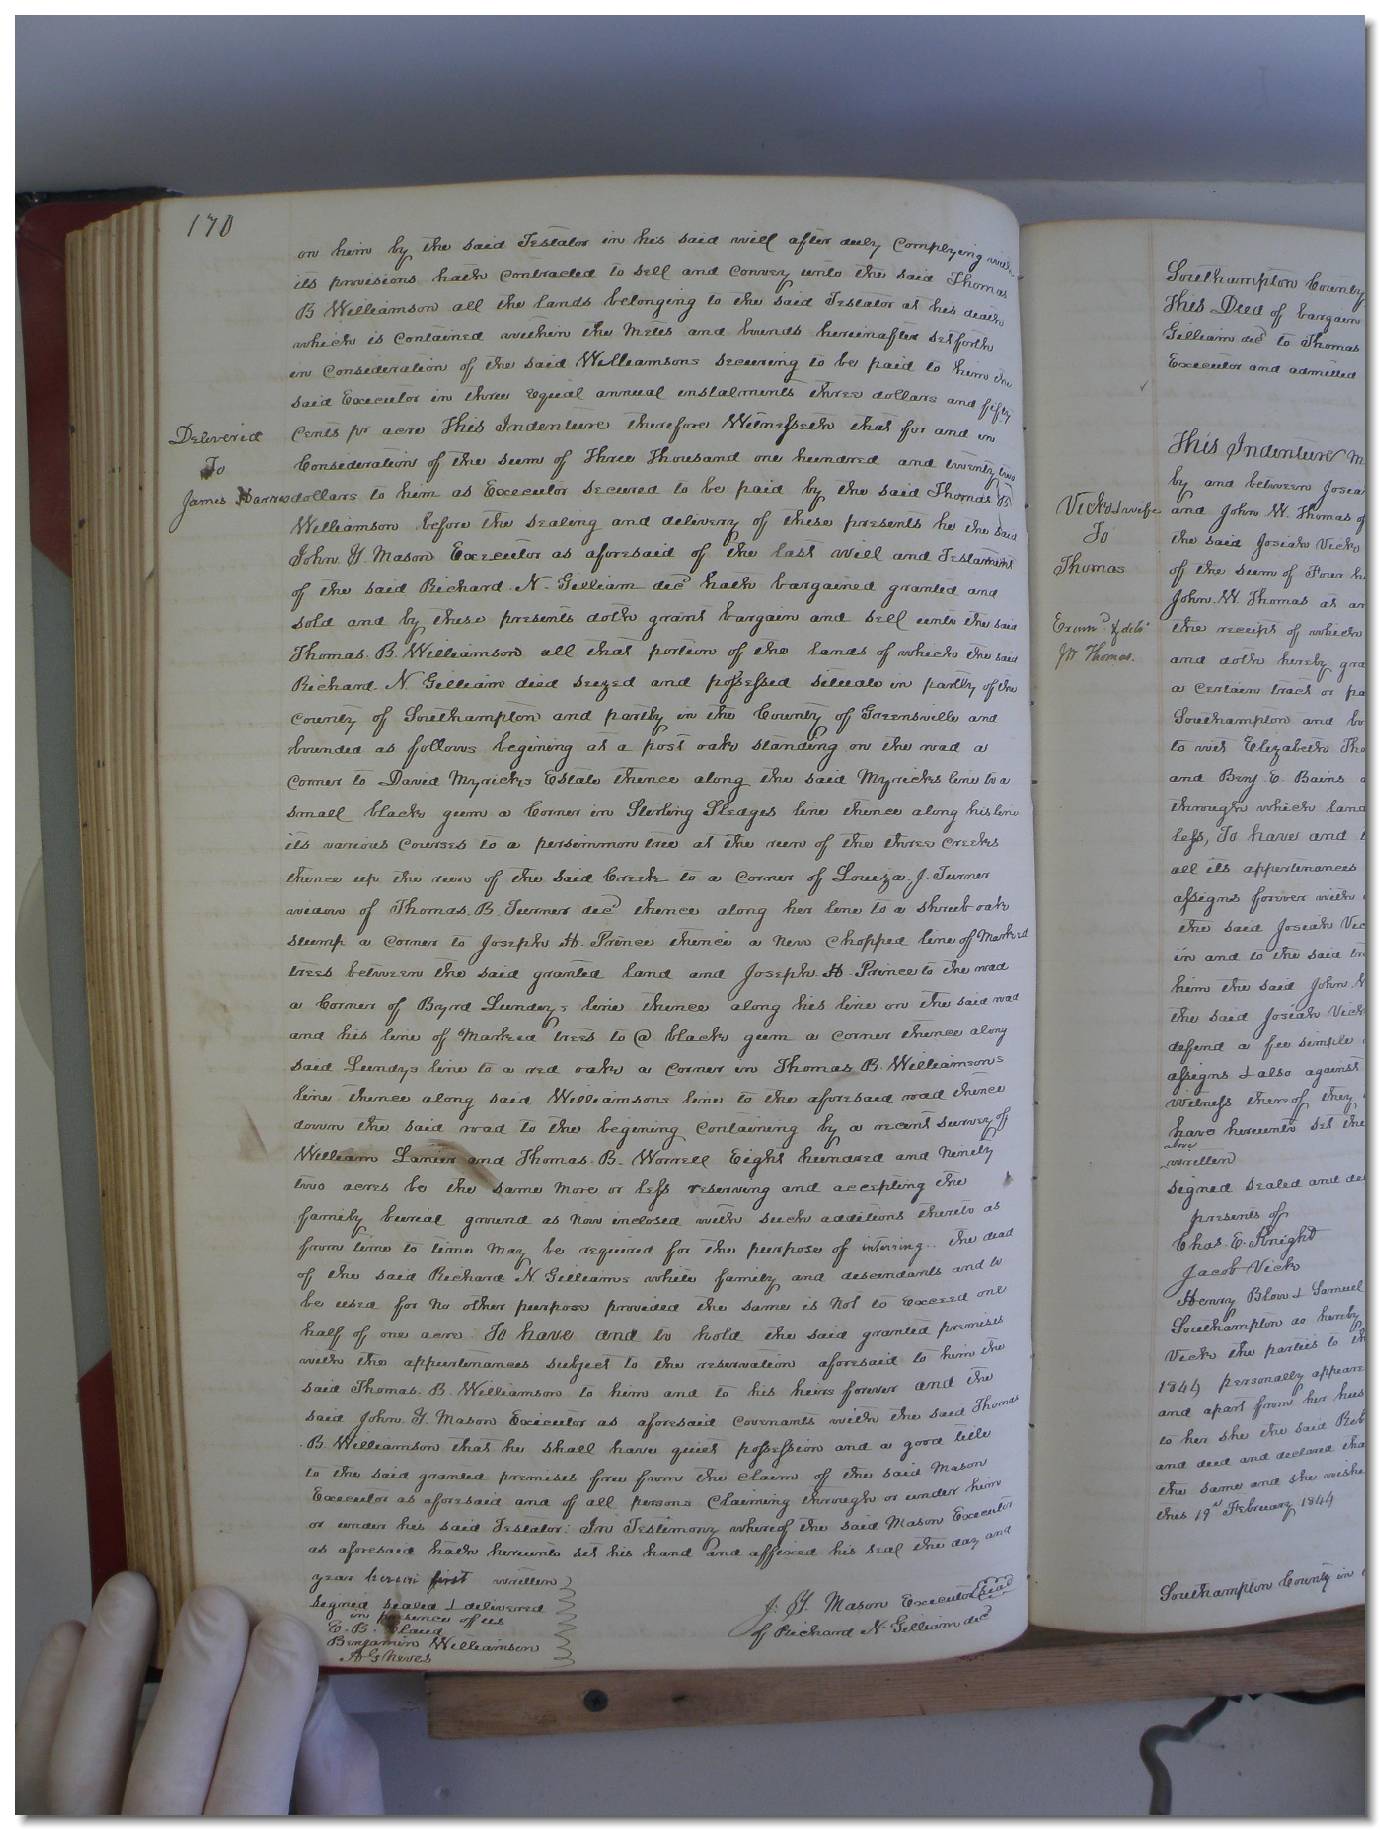 170
on him by the said Testator in his said will after duly Complying with
its provisions hath Contracted to sell and Convey unto the said Thomas
B Williamson all the lands belonging to the said Testator at his death
which is Contained within the Metes and bounds hereinafter setforth
in Consideration of the said Williamsons securing to be paid to him the
said Executor in three Equal annual instalments three dollars and fifty
Cents pr acre This Indenture therefore Witnesseth that for and in
Consideration of the sum of Three Thousand one hundred and twenty two
dollars to him as Executor secured to be paid by the said Thomas B
Williamson before the sealing and delivery of these presents he the said
John Y Mason Executor as aforesaid of the last will and Testament
of the said Richard N. Gilliam decd hath bargained granted and
sold and by these presents doth grant bargain and sell unto the said
Thomas. B. Williamson all that portion of the lands of which the said
Richard N. Gilliam died seized and possessed situate in partly of the
County of Southampton and partly in the County of Greensville and
bounded as follows begining at a post oak standing on the road a
Corner to David Myricks Estate thence along the said Myricks line to a
small black gum a Corner in Sterling Sledges line thence along his line
its various Courses to a persimmon tree at the run of the three creeks
thence up the run of the said Creek to a Corner of Louiza. J. Turner
widow of Thomas. B. Turner decd thence along her line to a shrub oak
stump a Corner to Joseph H. Prince thence a New Chopped line of Marked
trees between the said granted land and Joseph H. Prince to the road
a Corner of Byrd Lundys line thence along his line on the said road
and his line of Marked trees to @ black gum a corner thence along
said Lundys line to a red oak a Corner in Thomas B. Williamsons
line thence along said Williamsons line to the aforesaid road thence
down the said road to the begining Containing by a recent survey of
William Lanier and Thomas. B. Worrell Eight hundred and Ninety
two acres be the same More or less reserving and accepting the
family burial ground as Now inclosed with such additions thereto as
from time to time May be required for the purpose of interring.. the dead
of the said Richard N. Gilliams white family and descendants and to
be used for No other purpose provided the same is Not to Exceed one
half of one acre. To have and to hold the said granted premises
with the appurtenances subject to the reservation aforesaid to him the
said Thomas. B. Williamson to him and to his heirs forever and the
said John. Y. Mason Executor as aforesaid Covenants with the said Thomas
B. Williamson that he shall have quiet possession and a good title
to the said granted premises free from the claim of the said Mason
Executor as aforesaid and of all persons Claiming through or under him
or under his said Testator: In Testimony whereof the said Mason Executor
as aforesaid hath hereunto set his hand and affixed his seal the day and
year herein first written
Signed sealed & delivered
in presence of us
E. B. Claud
Benjamin Williamson
J. Y. Mason Executor Seal
of Richard N. Gilliam decd
Delivered
To
James Harris
Southampton County
This Deed of bargain
Gilliam decd to Thomas
Executor and admitted
This Indenture
by and between
and John W. Thomas of
the said Josiah Vick
of the sum of Four
John. W. Thomas at
the receipt of which
and doth hereby
a Certain tract or
Southampton and
to wit Elizabeth
and Benj. E. Bains
through which
less, To have and
all its appertenances
assigns forever with
the said Josiah
in and to the said
him the said John
the said Josiah Vick
defend a fee simple
assigns & also against
witness thereof they
have hereunto set
above
written
Signed sealed and
presents of
Chas. E. Knight
Jacob Vick
Henry Blow & Samuel
Southampton do hereby
Vick the parties to
1844 personally
and apart from her
to her she the said
and deed and declared
the same and she
this 19th February 1844
Southampton County in
Vick & wife
To
Thomas
J W Thomas.